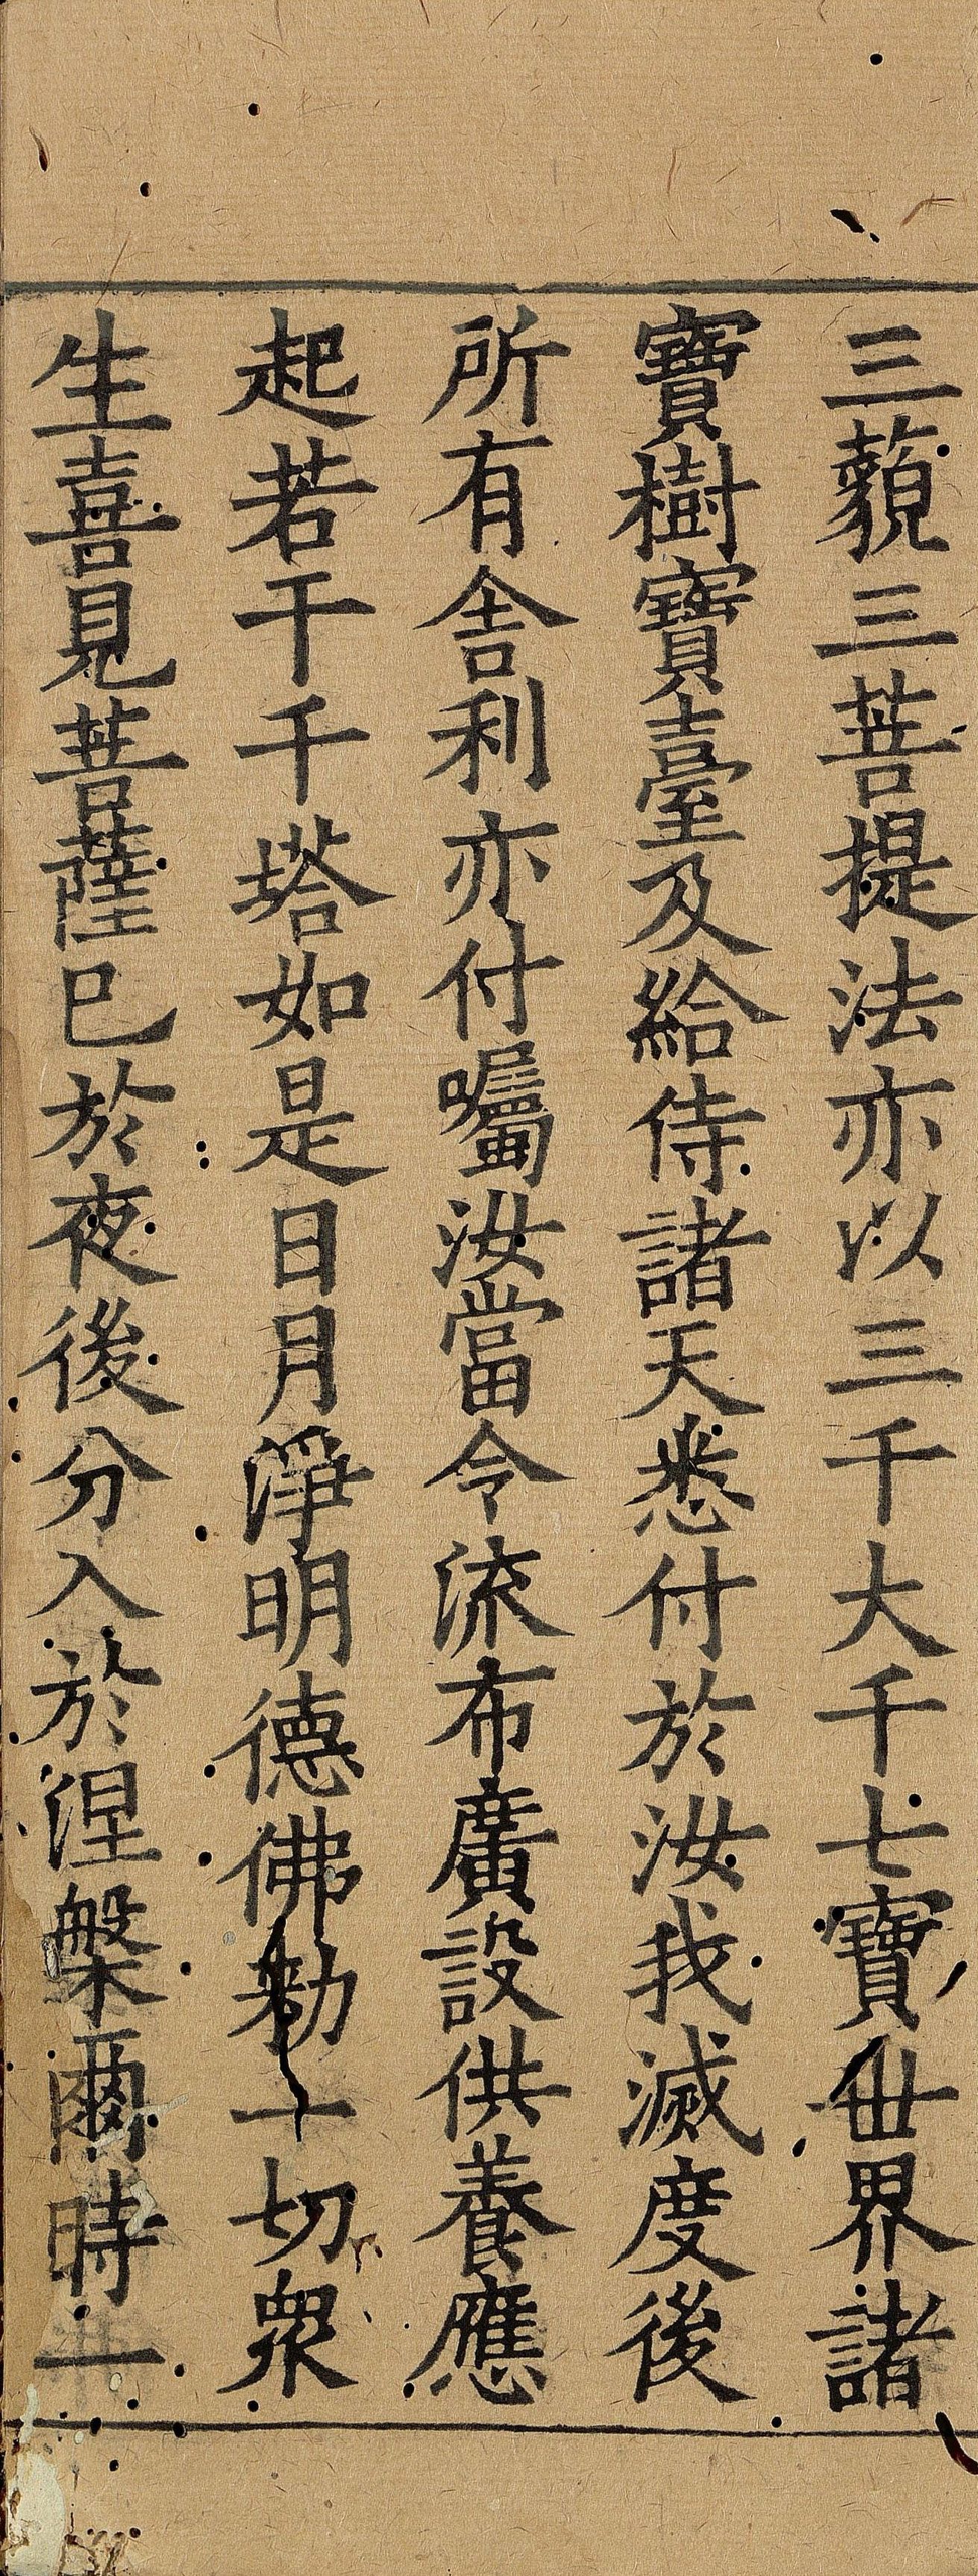 三藐三菩提法亦以三千大千七寶世界諸
寶樹寶臺及給侍諸天悉付於汝我滅度後
所有舍利亦付囑汝當令流布廣設供養應
起若干千塔如是日月淨明德佛勑一切衆
生喜見菩薩已於夜後分入於涅槃爾時一